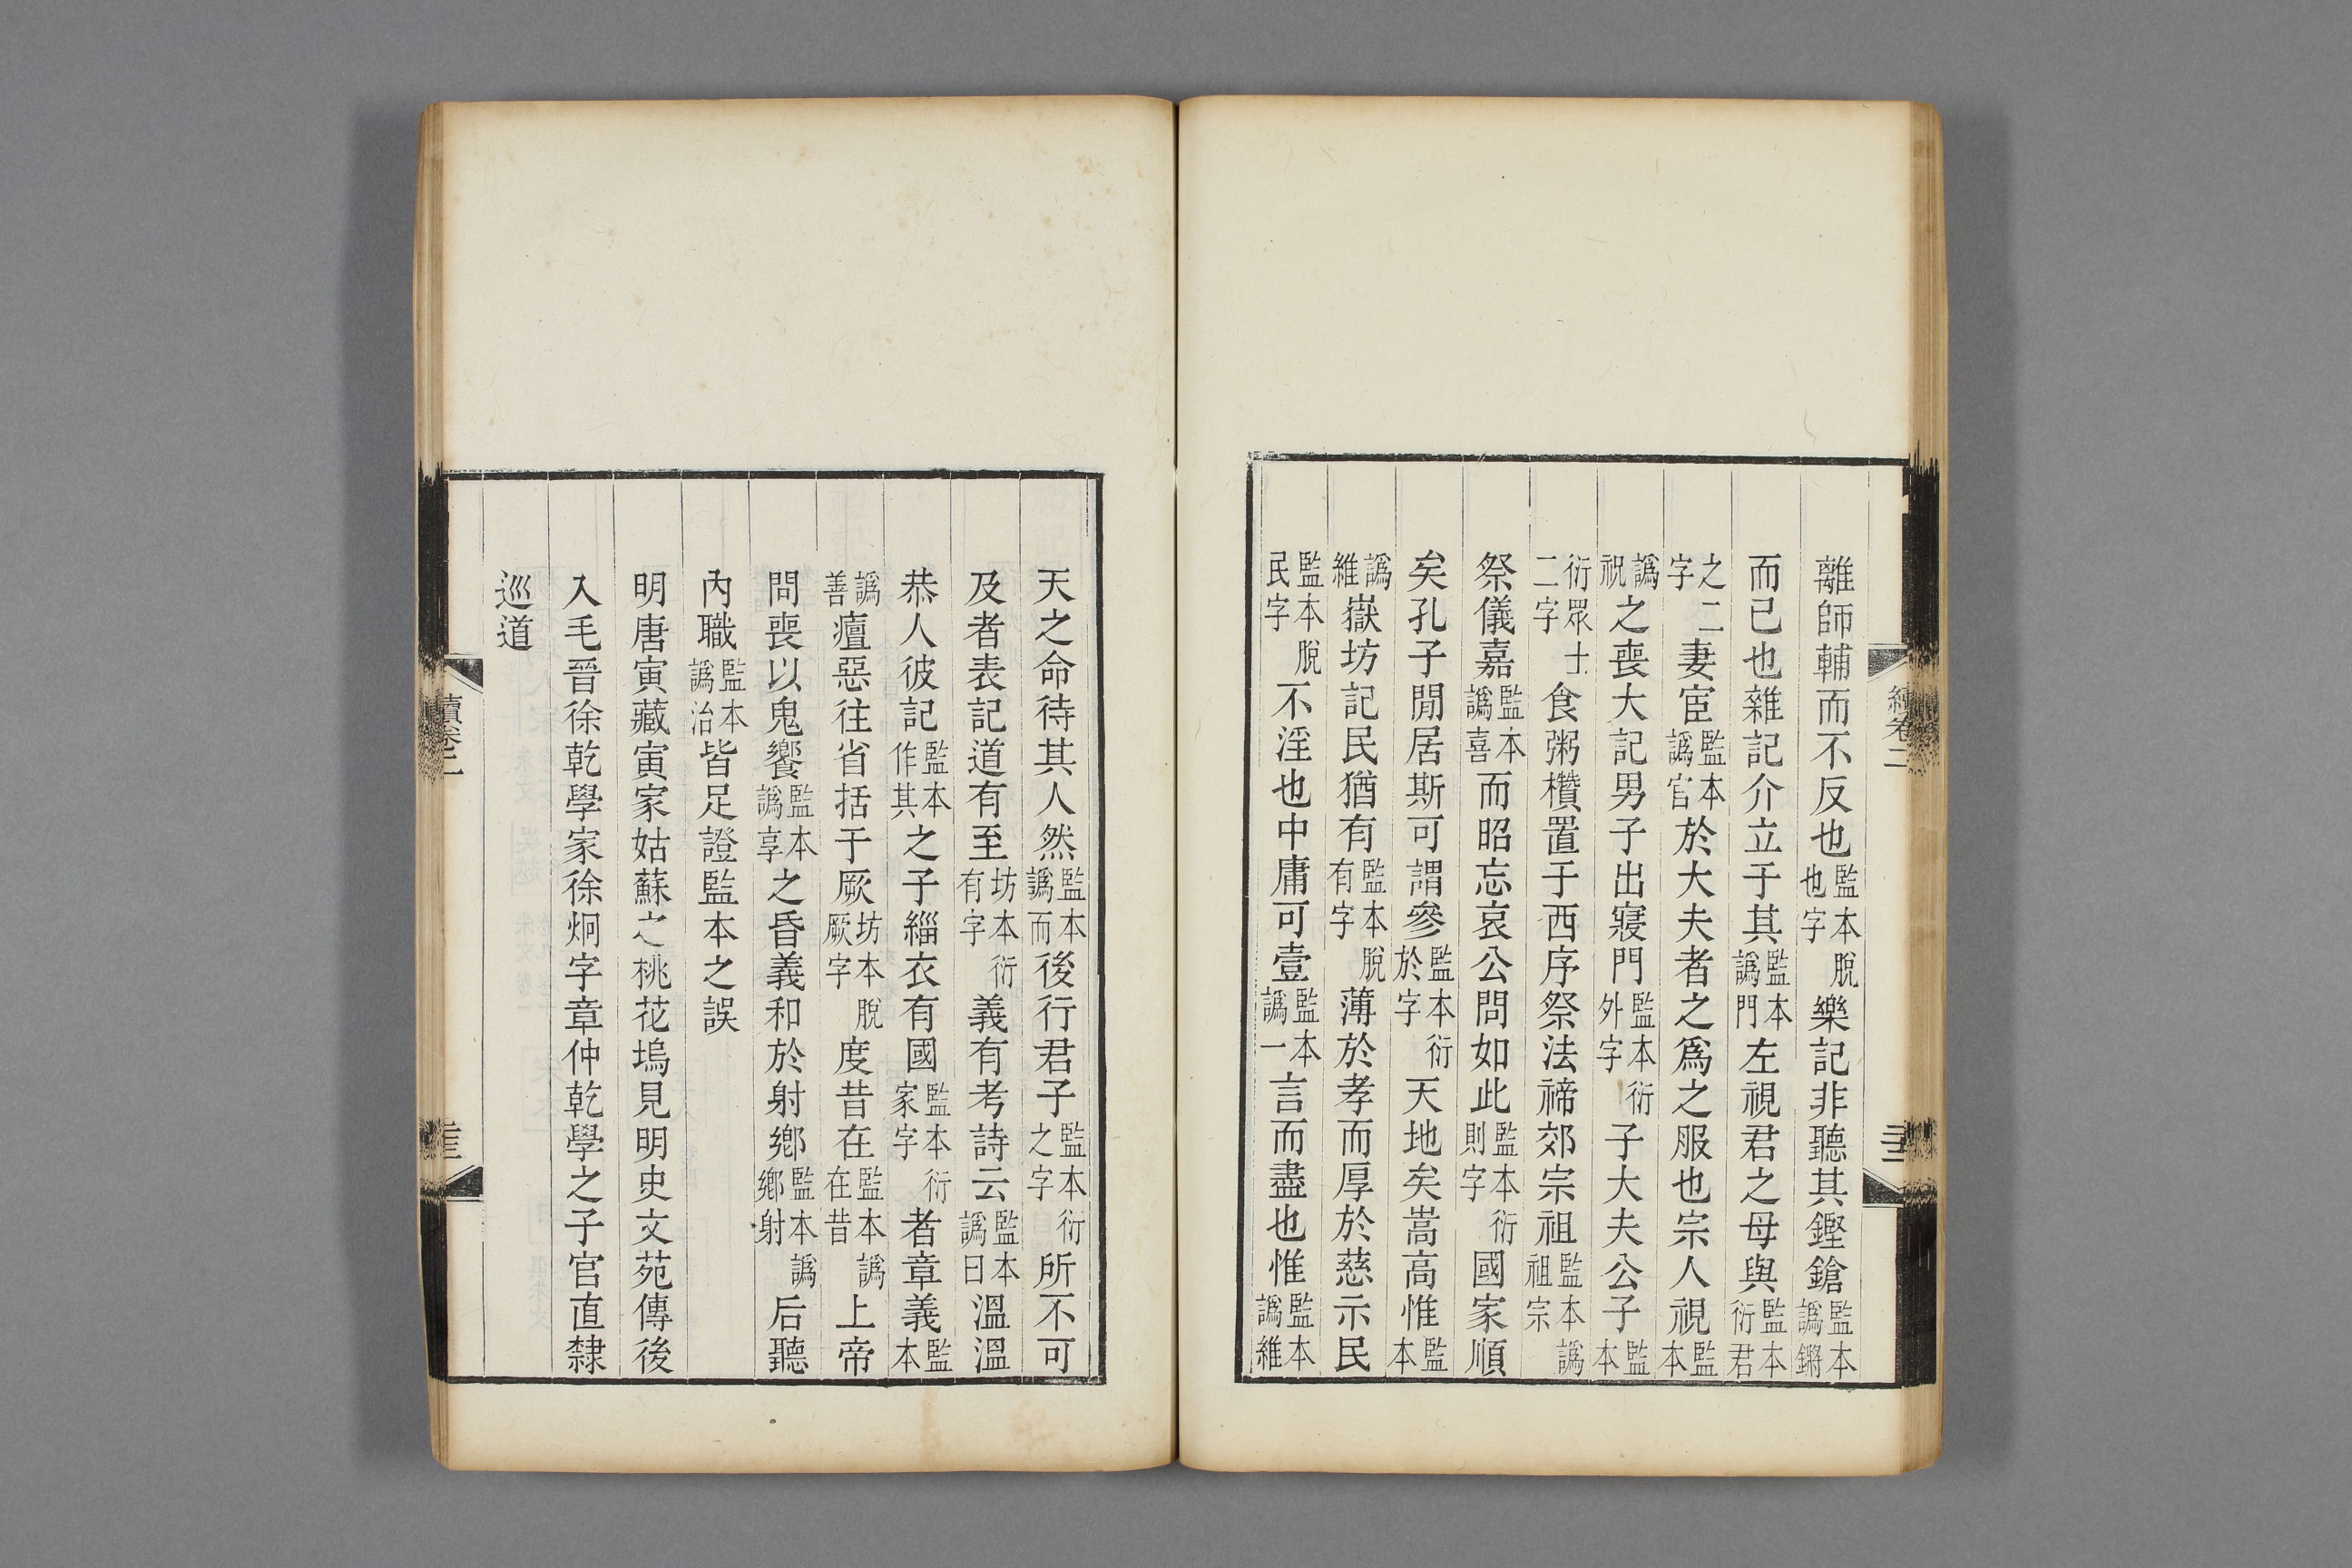 離師輔而不反也監本脫也字樂記非聽其鏗鎗監本譌鏘
而已也雜記介立于其監本譌門左視君之母與監本衍君
之二字妻宦監本譌官於大夫者之爲之服也宗人視監本
譌祝之喪大記男子出寢門監本衍外字子大夫公子監本
衍眾士二字食粥欑置于西序祭法禘郊宗祖監本譌祖宗
祭儀嘉監本譌喜而昭忘哀公問如此監本衍則字國家順
矣孔子閒居斯可謂參監本衍於字天地矣嵩高惟監本
譌維嶽坊記民猶有監本脫有字薄於孝而厚於慈示民
監本脫民字不淫也中庸可壹監本譌一言而盡也惟監本譌維
天之命待其人然監本譌而後行君子監本衍之字所不可
及者表記道有至坊本衍有字義有考詩云監本譌曰溫溫
恭人彼記監本作其之子緇衣有國監本衍家字者章義監本
譌善癉惡往省括于厥坊本脫厥字度昔在監本譌在昔上帝
問喪以鬼饗監本譌享之昏義和於射鄉監本譌鄉射后聽
內職監本譌治皆足證監本之誤
明唐寅藏寅家姑蘇之桃花塢見明史文苑傳後
入毛晉徐乾學家徐炯字章仲乾學之子官直隸
巡道
續卷二
續卷二